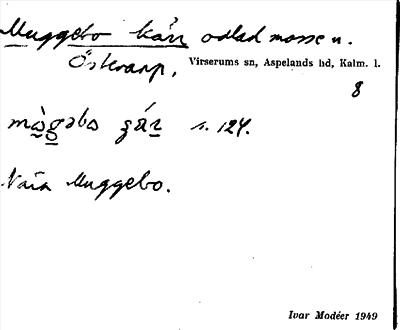 Muggebo kärr odlad mosse u.
Österarp, Virserums sn, Aspelands hd, Kalm. l.
8
s. 124.
Nära Muggebo.
Ivar Modéer 1949